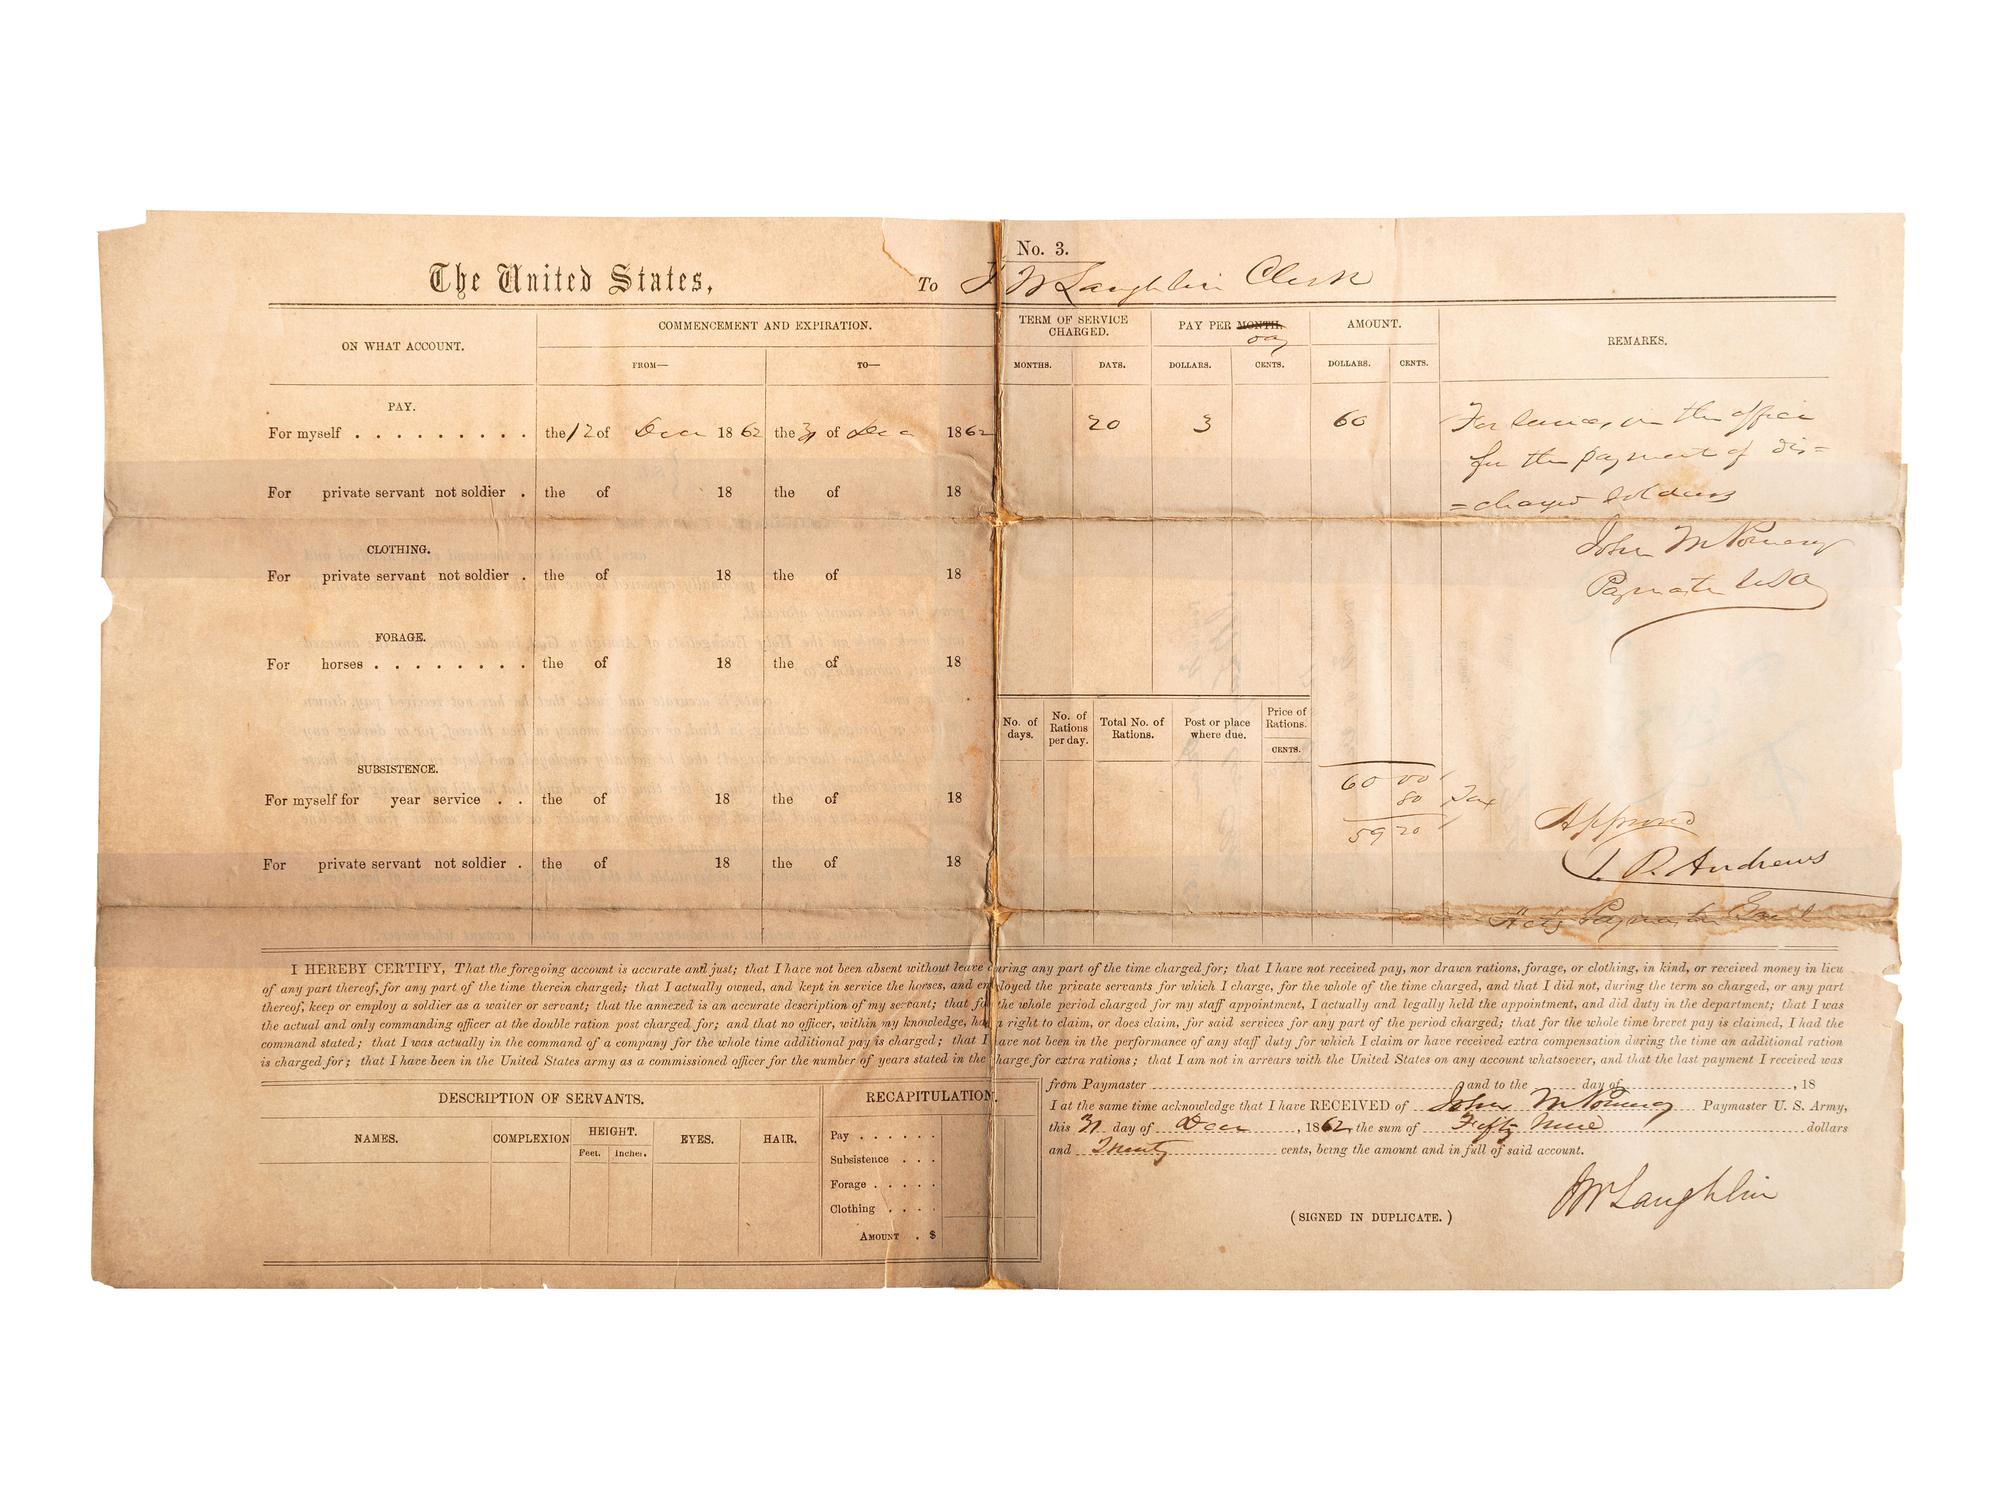 No. 3.
The United States, To J McLaughlin Clerk
ON WHAT ACCOUNT.
COMMENCEMENT AND EXPIRATION.
FROM—
TO—
TERM OF SERVICE CHARGED.
MONTHS. DAYS.
PAY PER MONTH.
Day
DOLLARS. CENTS.
AMOUNT.
DOLLARS. CENTS.
REMARKS.
PAY.
For myself . . . . . . . . . the 12 of Decr 1862 the 31 of Dec 1862 20 3 60
For services in the office
for the payment of dis=
=charged soldiers
John M Pomeroy
Paymaster USA
For private servant not soldier . the of 18 the of 18
CLOTHING.
For private servant not soldier . the of 18 the of 18
FORAGE.
For horses . . . . . . . . the of 18 the of 18
No. of days.
No. of Rations per day.
Total No. of Rations.
Post or place where due.
Price of Rations.
CENTS.
SUBSISTENCE.
For myself for year service . . the of 18 the of 18
60 00
80 Tax
59 20
For private servant not soldier . the of 18 the of 18
Approved
T. P. Andrews
Actg Paymaster Genl
I HEREBY CERTIFY, That the foregoing account is accurate and just; that I have not been absent without leave during any part of the time charged for; that I have not received pay, nor drawn rations, forage, or clothing, in kind, or received money in lieu
of any part thereof, for any part of the time therein charged; that I actually owned, and kept in service the horses, and employed the private servants for which I charge, for the whole of the time charged, and that I did not, during the term so charged, or any part
thereof, keep or employ a soldier as a waiter or servant; that the annexed is an accurate description of my servant; that for the whole period charged for my staff appointment, I actually and legally held the appointment, and did duty in the department; that I was
the actual and only commanding officer at the double ration post charged for; and that no officer, within my knowledge, has a right to claim, or does claim, for said services for any part of the period charged; that for the whole time brevet pay is claimed, I had the
command stated; that I was actually in the command of a company for the whole time additional pay is charged; that I have not been in the performance of any staff duty for which I claim or have received extra compensation during the time an additional ration
is charged for; that I have been in the United States army as a commissioned officer for the number of years stated in the charge for extra rations; that I am not in arrears with the United States on any account whatsoever, and that the last payment I received was
from Paymaster and to the day of , 18
I at the same time acknowledge that I have RECEIVED of John M Pomeroy Paymaster U. S. Army,
this 31 day of Decr , 1862, the sum of Fifty Nine dollars
and Twenty cents, being the amount and in full of said account.
J McLaughlin
(SIGNED IN DUPLICATE.)
DESCRIPTION OF SERVANTS.
NAMES.
COMPLEXION
HEIGHT.
Feet. Inches.
EYES.
HAIR.
RECAPITULATION.
Pay . . . . . .
Subsistence . . .
Forage . . . . .
Clothing . . . .
AMOUNT . $